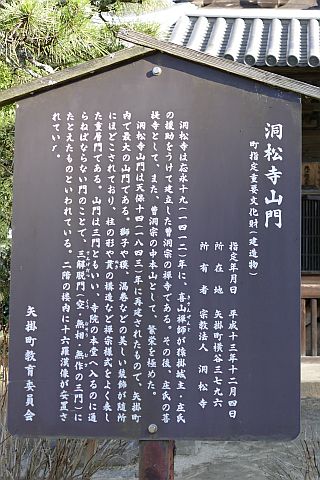 洞松寺山門
町指定重要文化財（建造物）
指定年月日　平成十三年十二月四日
所在地　矢掛町横谷三七九六
所有者　宗教法人　洞松寺
洞松寺は応永十九（一四一二）年に、喜山禅師が猿掛城主・庄氏
の援助をうけて建立した曹洞宗の禅寺である。その後、庄氏の菩
提寺として、また、曹洞宗の中本山として、繁栄を極めた。
洞松寺山門は天保十四（一八四三）年に再建されたもので、矢掛町
内で最大の山門である。獅子や獏、渦巻などの美しい装飾が随所
にほどこされており、柱の形や貫の構造など禅宗様式をよく表し
た重層門である。山門は三門ともいい、寺院の本堂へ入るのに通
らねばならない門のことで、三解脱門（空・無相・無作の三門）に
たとえたものといわれている。二階の楼内に十六羅漢像が安置さ
れている。
矢掛町教育委員会